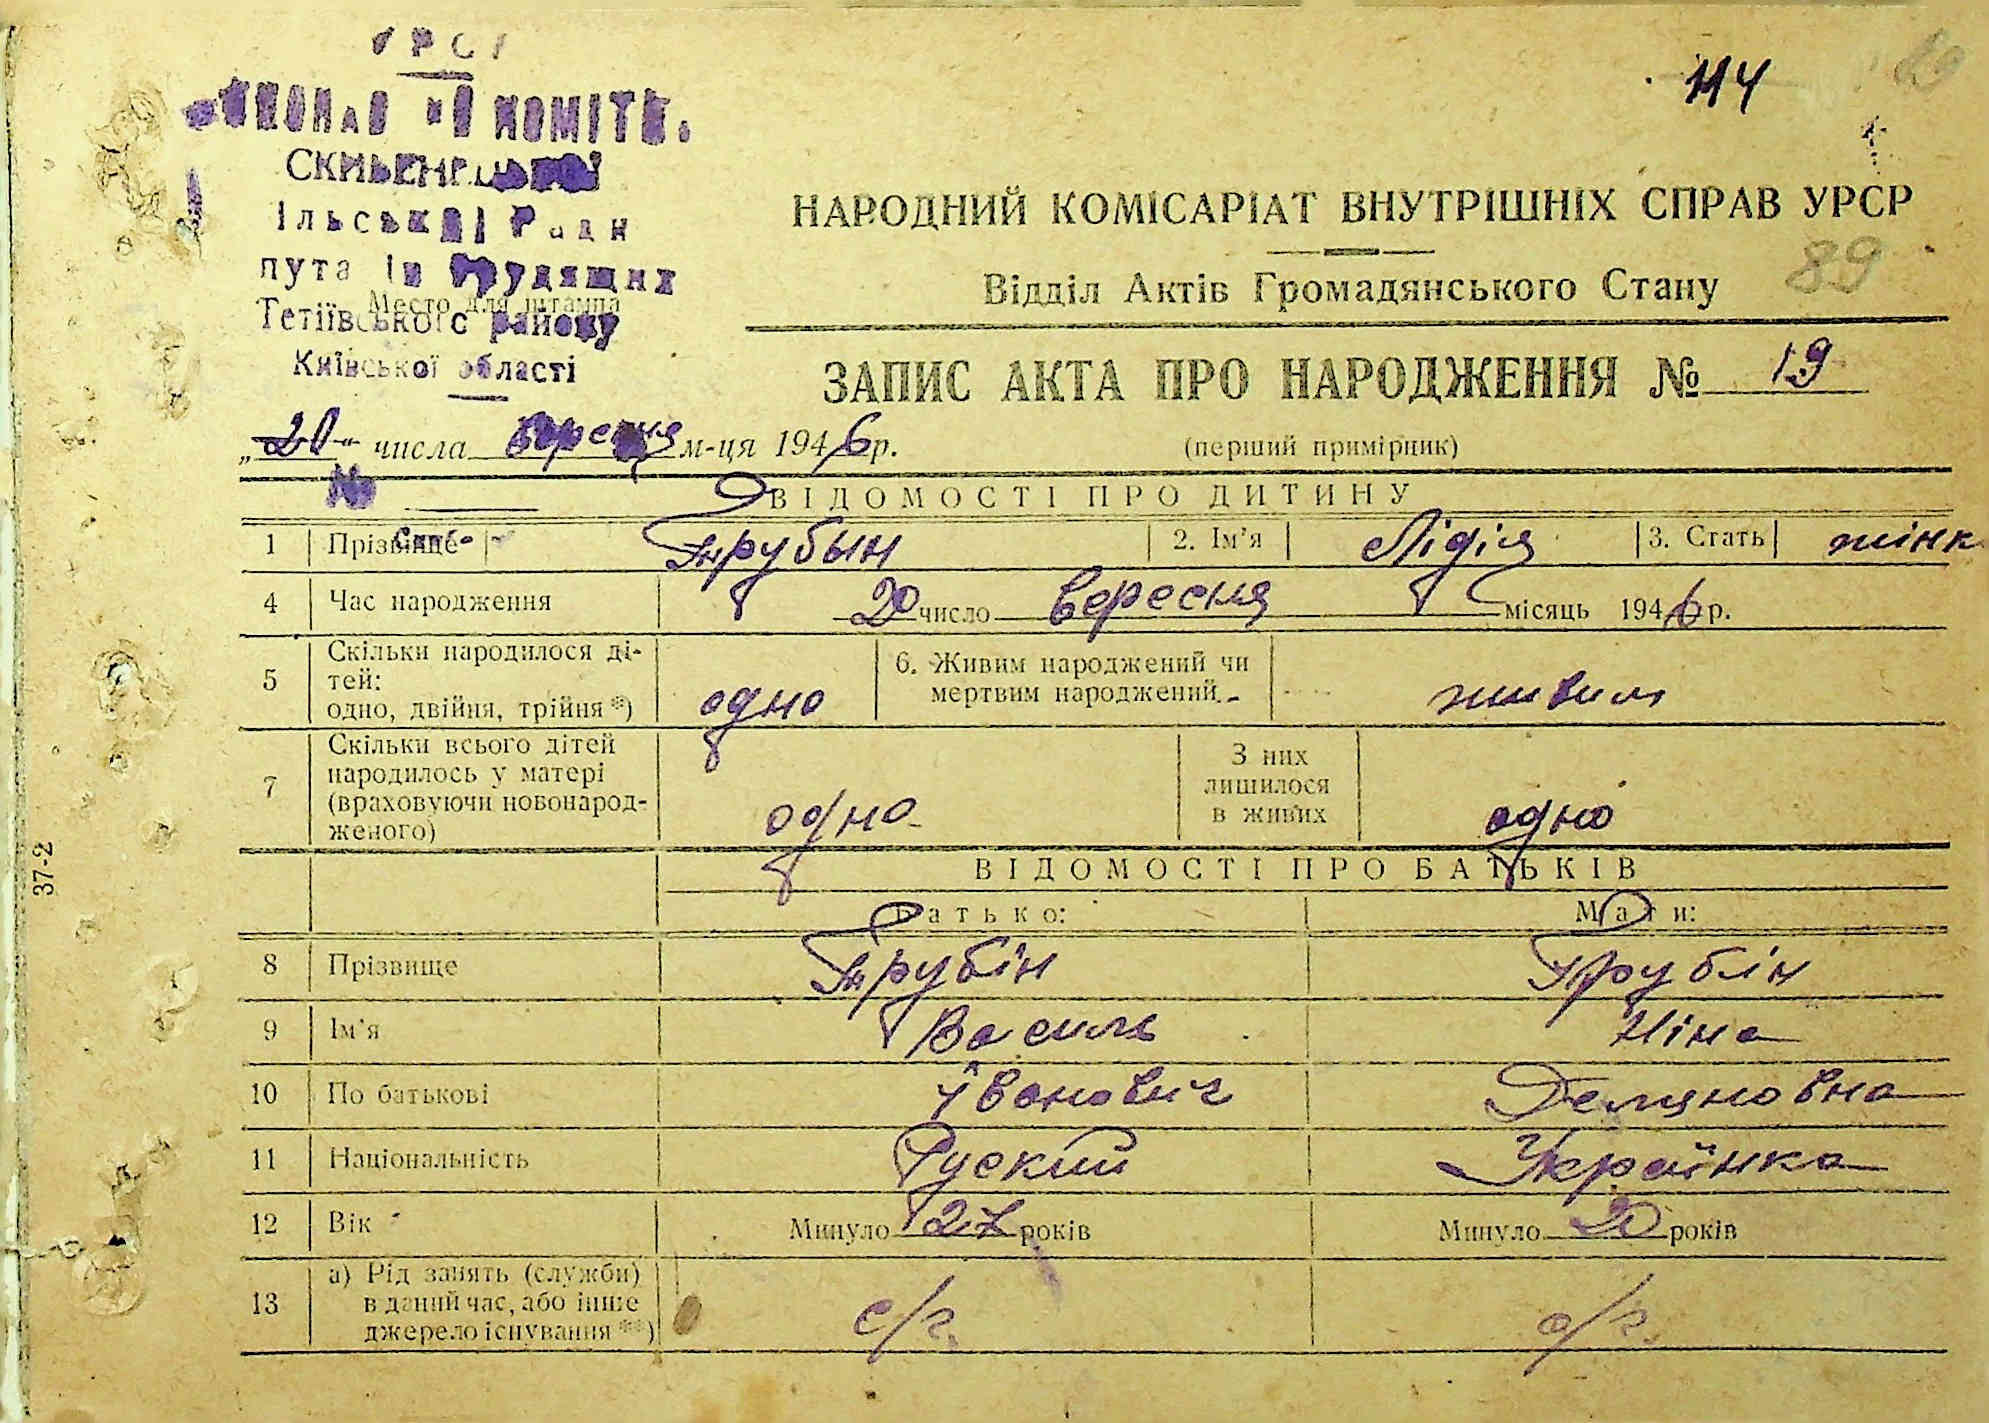 114
НАРОДНИЙ КОМІСАРІАТ ВНУТРІШНІХ СПРАВ УРСР
89
Відділ Актів Громадянського Стану
Тетіївського району
Место для штампа
Київської області
ЗАПИС АКТА ПРО НАРОДЖЕННЯ № 19
„20“ числа вересня м-ця 1946 р.
(перший примірник)
№
ВІДОМОСТІ ПРО ДИТИНУ
1 Прізвище Трубын 2. Ім’я Лідія 3. Стать жінк
4 Час народження 20 число вересня місяць 1946 р.
5 Скільки народилося ді-
тей:
одно, двійня, трійня *) одно
6. Живим народжений чи
мертвим народжений живим
7 Скільки всього дітей
народилось у матері
(враховуючи новонарод-
женого) одно
З них
лишилося
в живих одно
ВІДОМОСТІ ПРО БАТЬКІВ
Батько: Мати:
8 Прізвище Трубін Трубін
9 Ім’я Василь Ніна
10 По батькові Іванович Демяновна
11 Національність Руский Українка
12 Вік Минуло 27 років Минуло 20 років
13 а) Рід занять (служби)
в даний час, або інше
джерело існування **) с/г. с/г.
37-2